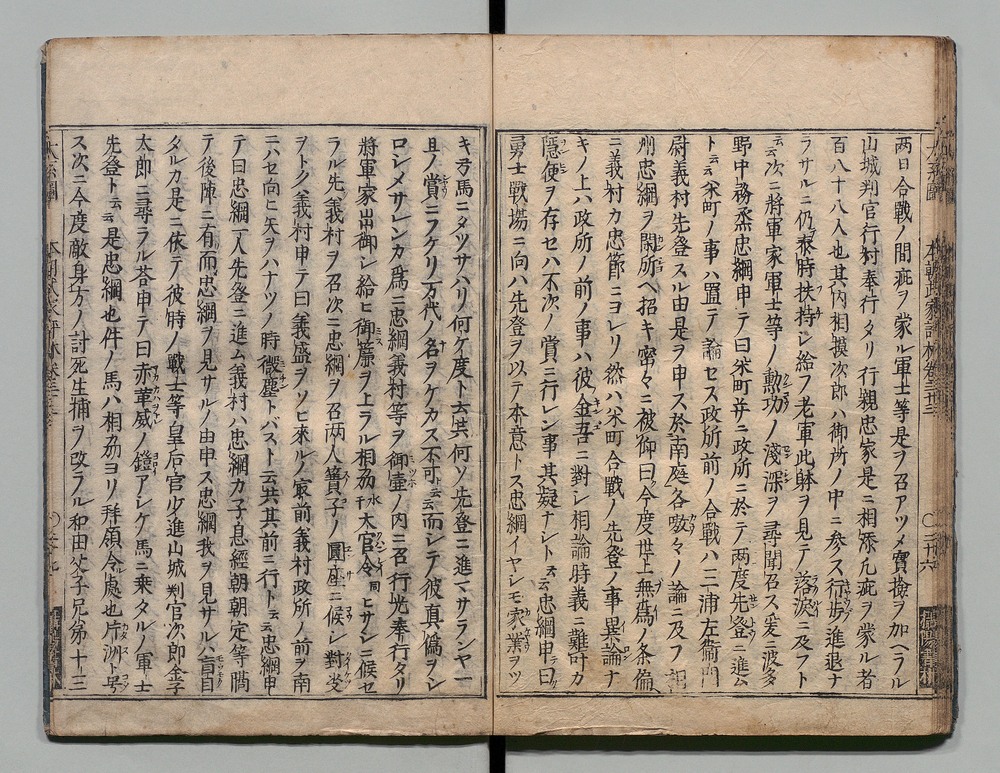 両日合戰ノ間疵ヲ蒙ル軍士等是ヲ召アツメ實撿ヲ加ヘラル
山城判官行村奉行タリ行親忠家是ニ相添凡疵ヲ蒙ル者
百八十八人也其内相摸次郎ハ御所ノ中ニ参ス行歩進退ナ
ラサルニ仍泰時扶持シ給フ老軍此躰ヲ見テ落涙ニ及フト
云云次ニ將軍家軍士等ノ勲功ノ淺深ヲ尋聞召ス爰ニ波多
野中務烝忠綱申テ曰米町并ニ政所ニ於テ両度先登ニ進ム
ト云云米町ノ事ハ置テ論セス政所前ノ合戰ハ三浦左衞門
尉義村先登スル由是ヲ申ス於南庭各嗷々ノ論ニ及フ相
州忠綱ヲ閑所ヘ招キ密々ニ被仰曰今度世上無爲ノ条偏
ニ義村カ忠節ニヨレリ然ハ米町合戰ノ先登ノ事異論ナ
キノ上ハ政所ノ前ノ事ハ彼金吾ニ對シ相論時義ニ難叶カ
隱便ヲ存セハ不次ノ賞ニ行レン事其疑ナシト云云忠綱申曰
勇士戰塲ニ向ハ先登ヲ以テ本意トス忠綱イヤシモ家業ヲツ
キ弓馬ニタツサハリ何ケ度ト云共何ソ先登ニ進マサランヤ一
旦ノ賞ニフケリ万代ノ名ヲケカス不可ト云云而シテ彼真僞ヲシ
ロシメサンカ爲ニ忠綱義村等ヲ御壷ノ内ニ召行光奉行タリ
將軍家出御シ給ヒ御簾ヲ上ラル相劦大官令同ヒサシニ候セ
ラル先義村ヲ召次ニ忠綱ヲ召兩人簀子ノ圓座ニ候シ對決
ヲトク義村申テ曰義盛ヲソヒ來ルノ冣前義村政所ノ前ヲ南
ニハセ向ヒ矢ヲハナツノ時微塵トバスト云共其前ニ行ト云云忠綱申
テ曰忠綱一人先登ニ進ム義村ハ忠綱カ子息經朝朝定等間
テ後陣ニ有而忠綱ヲ見サルノ由申ス忠綱我ヲ見サルハ盲目
タルカ是ニ依テ彼時ノ戰士等皇后官少進山城判官次郎金子
太郎ニ尋ラル荅申テ曰赤革威ノ鎧アシケ馬ニ乗タルノ軍士
先登ト云云是忠綱也件ノ馬ハ相劦ヨリ拜領令處也片洲ト号
ス次ニ今度敵身方ノ討死生捕ヲ改ラル和田父子兄弟十三